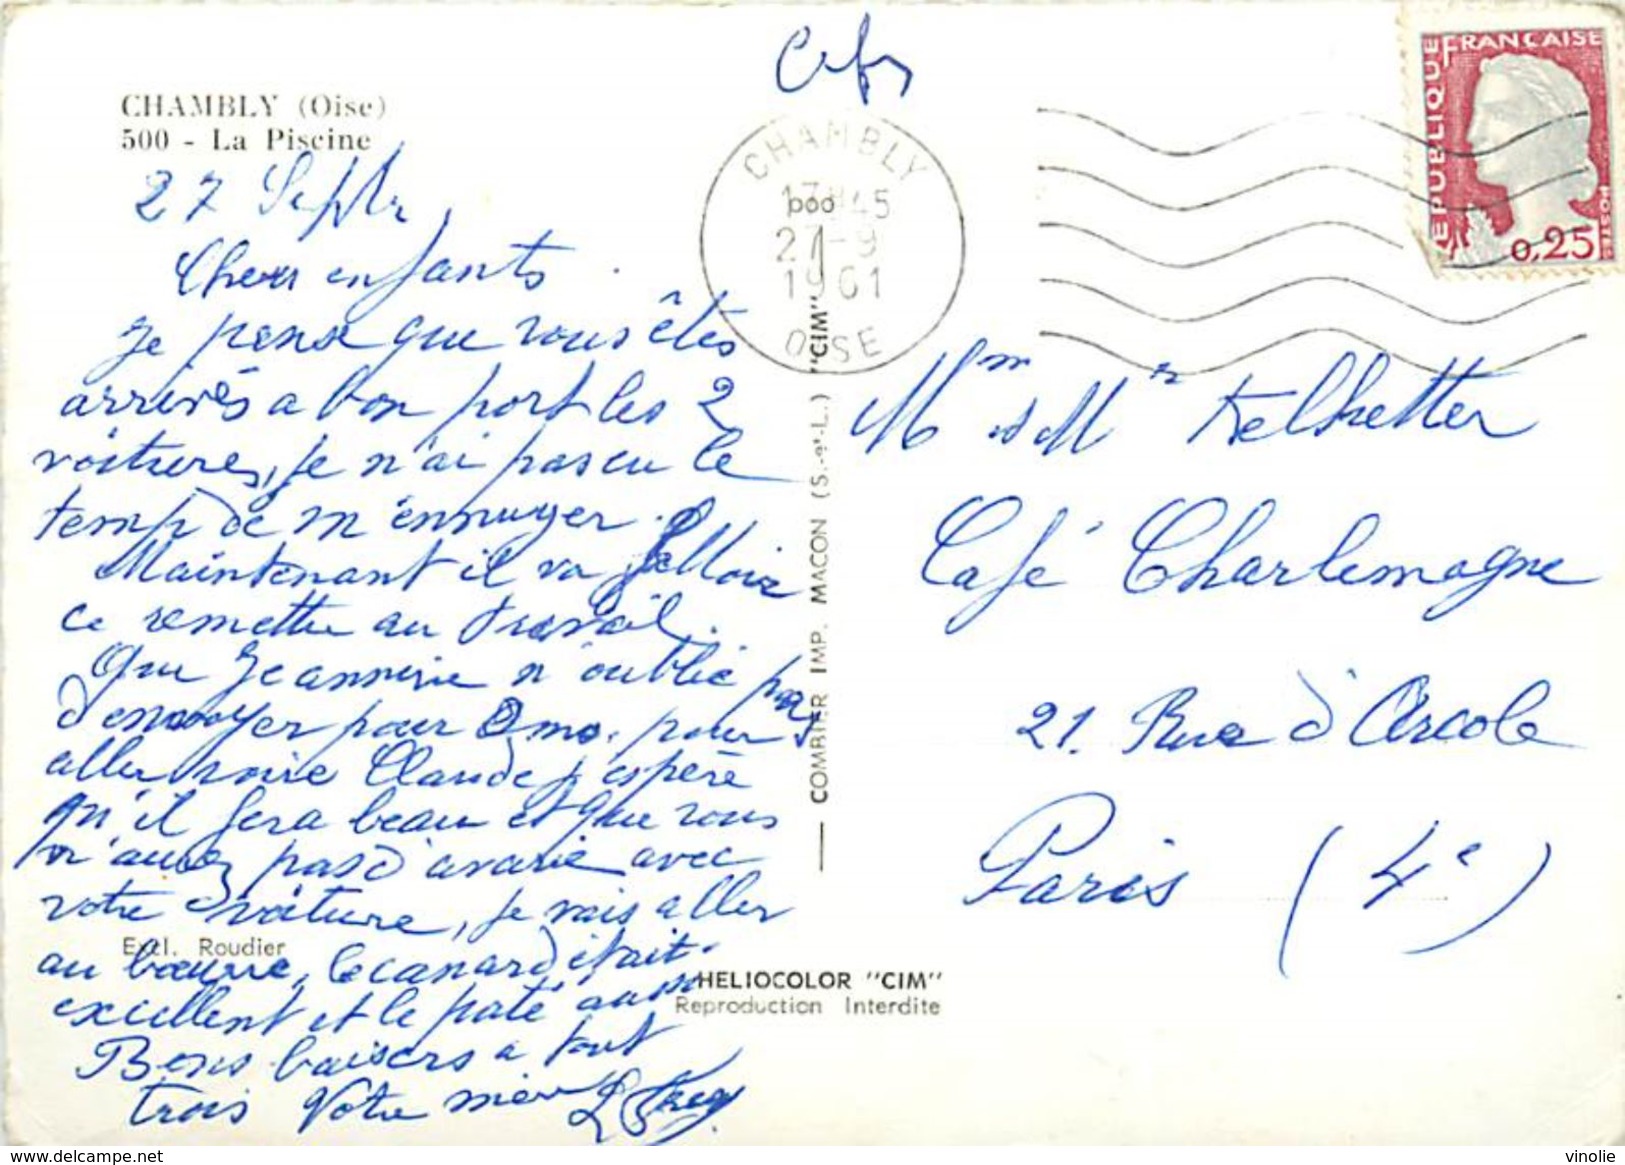 CHAMBLY (Oise)
500 - La Piscine
27 Septbr
Chers enfants.
Je pense que vous êtes
arrivés a bon port les 2
voitures, je n'ai pas eu le
temp de m'ennuyer.
Maintenant il va falloir
ce remettre au travail.
Que Jeannine n'oublie pas
d'envoyer pour Omo. pour
aller voire Claude j'espère
qu'il fera beau et que vous
n'aurez pas d'avarie avec
votre voiture, je vais aller
au beurre, le canard était
excellent et le paté aussi
Bons baisers a tout
trois Votre mère
Excl. Roudier
CHAMBLY
17H45
27-9
1961
OISE
COMBIER IMP. MACON (S.-et-L.) "CIM"
HELIOCOLOR "CIM"
Reproduction Interdite
REPUBLIQUE FRANCAISE
0,25
POSTES
Mm et Mr
Café Charlemagne
21. Rue d'Arcole
Paris (4e)
delcampe.net
vinolie